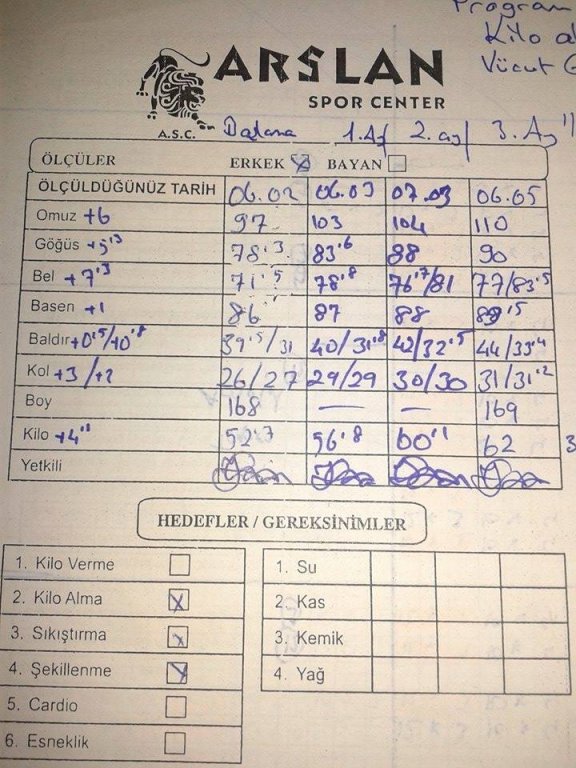 Program
Kilo al
Vücut G
ARSLAN
SPOR CENTER
A.S.C.
1.Ay 2.ay 3.Ay
ÖLÇÜLER ERKEK BAYAN
ÖLÇÜLDÜĞÜNÜZ TARİH 06.02 06.03 07.03 06.05
Omuz +6 97 103 104 110
Göğüs +5'3 78'3 83'6 88 90
Bel +7'3 71'5 78'8 76'7/81 77/83'5
Basen +1 86 87 88 89'5
Baldır +0'5/+0'8 39'5/31 40/31'8 42/32'5 44/33'4
Kol +3/+2 26/27 29/29 30/30 31/31'2
Boy 168 — — 169
Kilo +4'1 52'7 56'8 60'1 62 3
Yetkili
HEDEFLER / GEREKSİNİMLER
1. Kilo Verme
2. Kilo Alma X
3. Sıkıştırma x
4. Şekillenme X
5. Cardio
6. Esneklik
1. Su
2. Kas
3. Kemik
4. Yağ